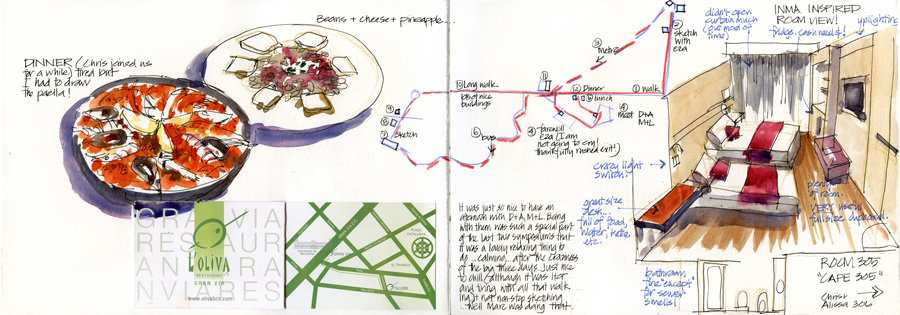 Beans + cheese + pineapple...
DINNER (Chris joined us
for a while) tired but
I had to draw
the paella!
GRAN VIA
RESTAUR
ANT GRA
N VIA RES
L'OLIVA
RESTAURANT
GRAN VIA
www.olivabcn.com
GRAN VIA
⑩ Long walk
lots of nice
buildings
⑨
⑧
⑦ sketch
⑥ bus
⑪
③ metro
② sketch
with
eza
① walk
⑫ Dinner
lunch
④ meet D+A
M+L
farewell
eza (I am
not going to cry!
thankfully rushed exit!)
It was just so nice to have an
afternoon with D+A, M+L. Being
with them was such a special part
of the last two symposiums that
it was a lovely relaxing thing to
do... calming... after the craziness
of the big three days. Just nice
to chill (although it was hot
and tiring with all that walk
ing) + not non-stop sketching
...well Marc was doing that.
didn't open
curtain much
(out most of
time)
INMA INSPIRED
ROOM VIEW!
fridge.
uplighting
crazy light
switch.
great size
desk...
full of food,
water, kettle
etc.
plenty
of room.
VERY useful
full size cupboard.
bathroom
"fine" except
for sewer
smells!
ROOM 305
"CAPE 305"
Chris+
Alissa 306